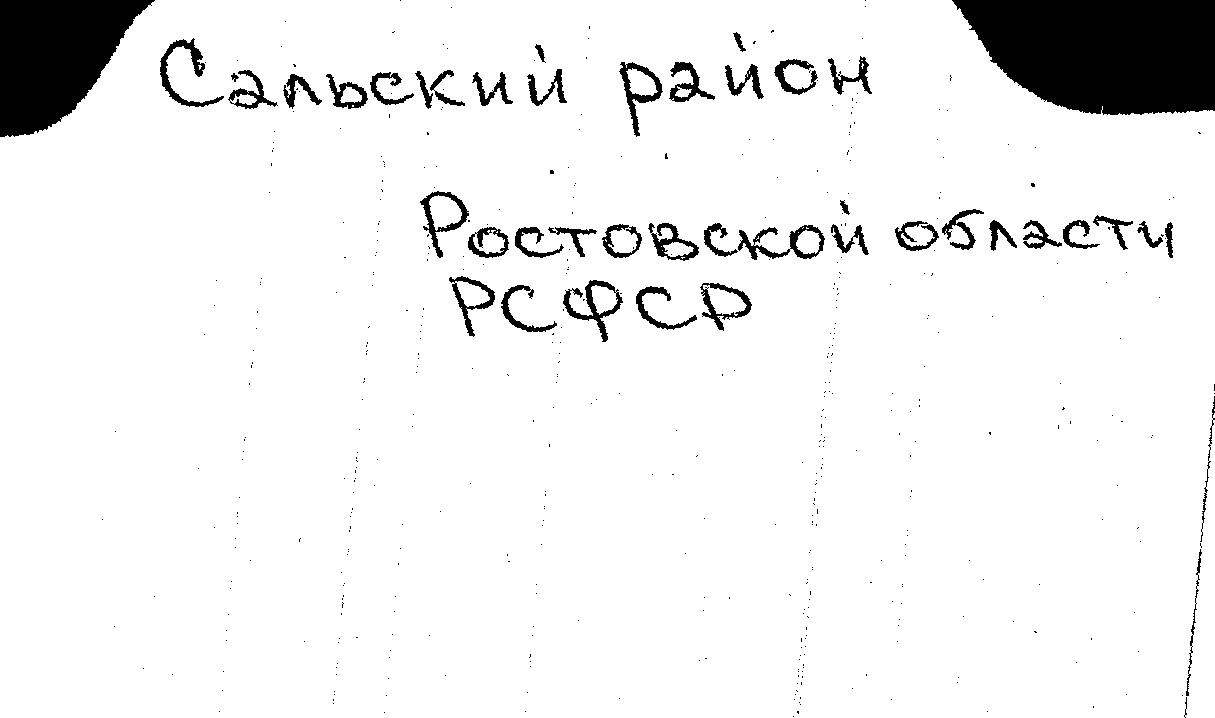 Сальский район
Ростовской области
РСФСР